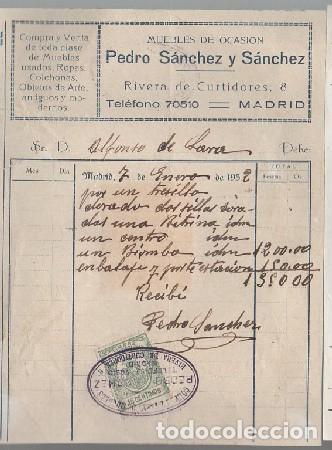 Compra y Venta
de toda clase
de Muebles
usados, Ropas,
Colchones,
Objetos de Arte,
antiguos y mo-
dernos.
MUEBLES DE OCASION
Pedro Sánchez y Sánchez
Rivera de Curtidores, 8
Teléfono 70510 MADRID
Sr. D. Alfonso de Lara Debe:
TOTAL
Mes Día Madrid, 7 de Enero de 1952 Pesetas Cts.
por un tresillo
dorado dos sillas dora-
das una Bitrina idm
un centro idm
un Biombo idm 1200.00
embalaje y porte estacion 150.00
1350 00
Recibí
Pedro Sanchez
PEDRO SANCHEZ
RIVERA DE CURTIDORES
todocoleccion.net